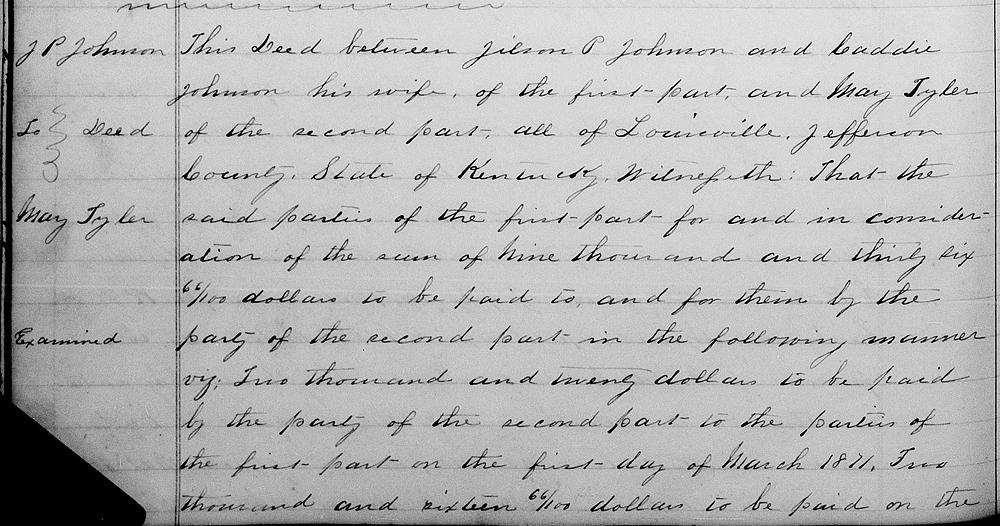 J P Johnson
To } Deed
May Tyler
Examined
This Deed between Jilson P Johnson and Caddie
Johnson his wife, of the first part, and May Tyler
of the second part, all of Louisville, Jefferson
County, State of Kentucky, Witnesseth: That the
said parties of the first part for and in consider-
ation of the sum of Nine thousand and thirty six
66/100 dollars to be paid to, and for them by the
party of the second part in the following manner
viz; Two thousand and twenty dollars to be paid
by the party of the second part to the parties of
the first part on the first day of March 1871, Two
thousand and sixteen 66/100 dollars to be paid on the